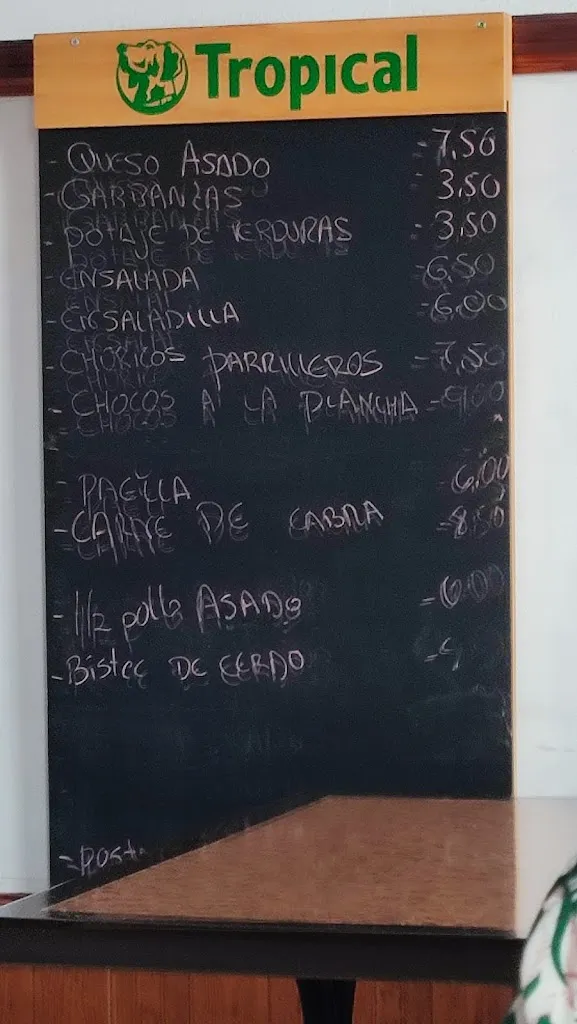 Tropical
- QUESO ASADO - 7,50
- GARBANZAS - 3,50
- POTAJE DE VERDURAS - 3,50
- ENSALADA - 6,50
- ENSALADILLA - 6,00
- CHORICOS PARRILLEROS - 7,50
- CHOCOS A LA PLANCHA - 9,00
- PAELLA - 6,00
- CARNE DE CABRA - 8,50
- 1/2 pollo ASADO - 6,00
- Bistec DE CERDO